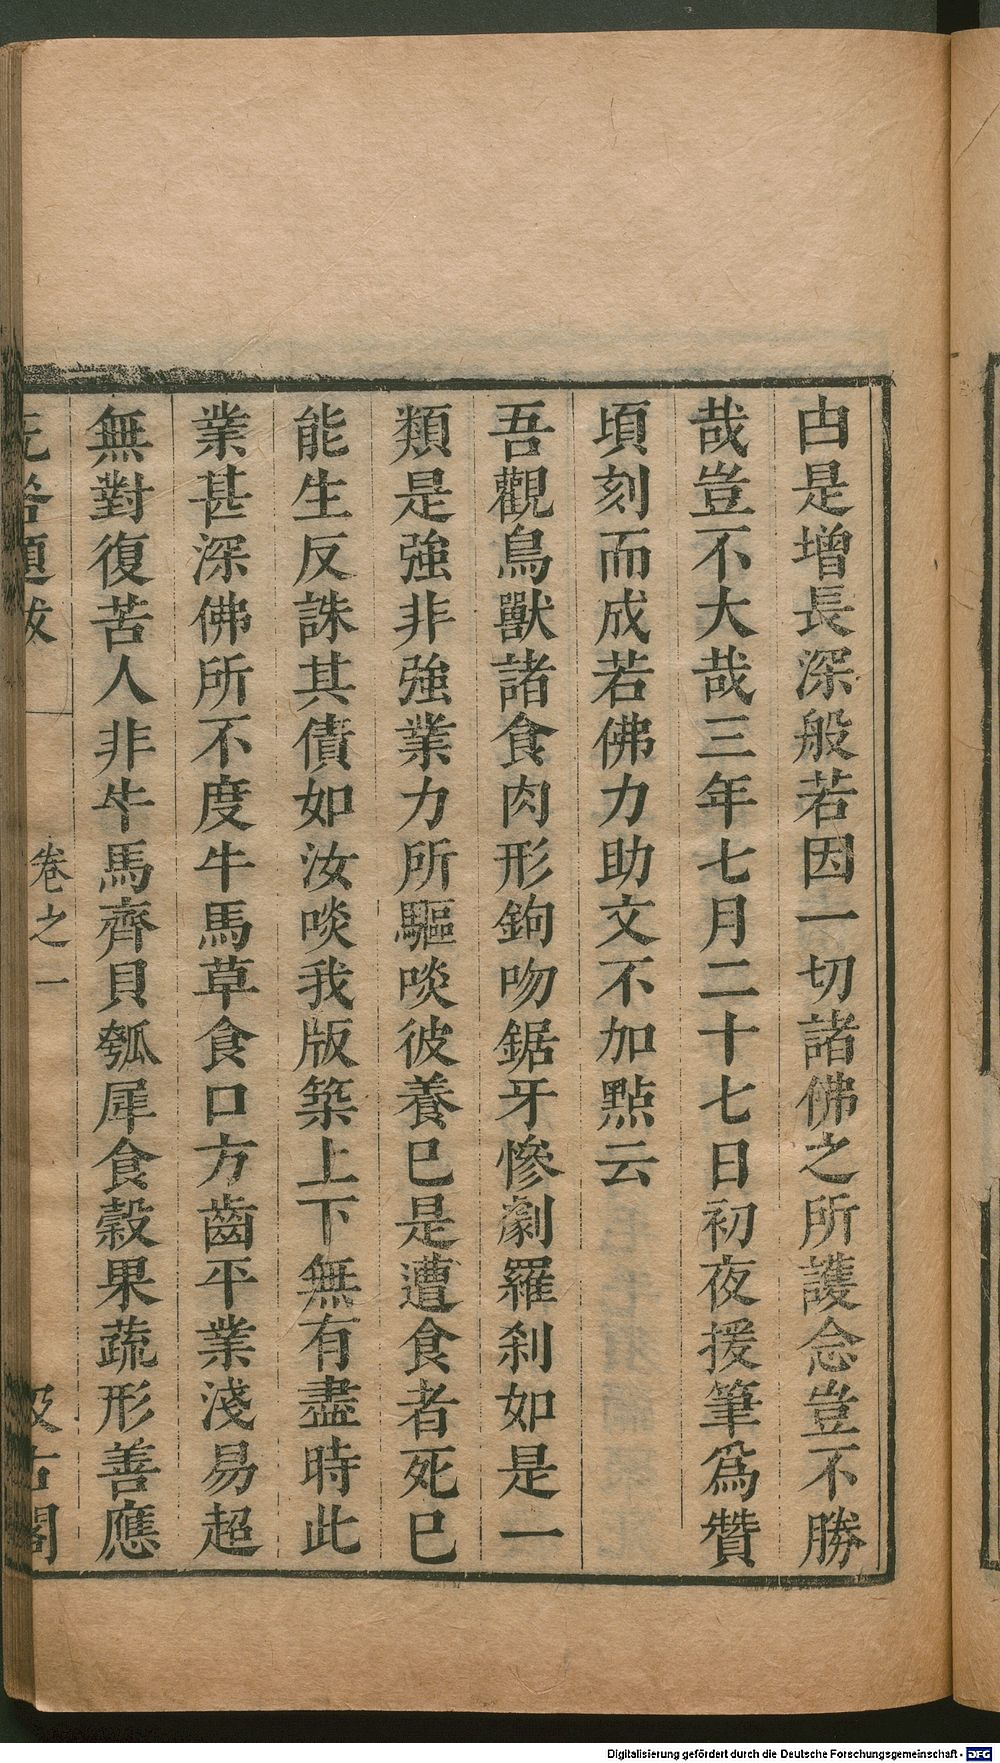 由是增長深般若因一切諸佛之所護念豈不勝
哉豈不大哉三年七月二十七日初夜援筆爲贊
頃刻而成若佛力助文不加點云
吾觀鳥獸諸食肉形鉤吻鋸牙慘劇羅刹如是一
類是強非強業力所驅啖彼養巳是遭食者死巳
能生反誅其債如汝啖我版築上下無有盡時此
業甚深佛所不度牛馬草食口方齒平業淺易超
無對復苦人非牛馬齊貝瓠犀食穀果蔬形善應
題跋
卷之一
汲古閣
Digitalisierung gefördert durch die Deutsche Forschungsgemeinschaft - DFG